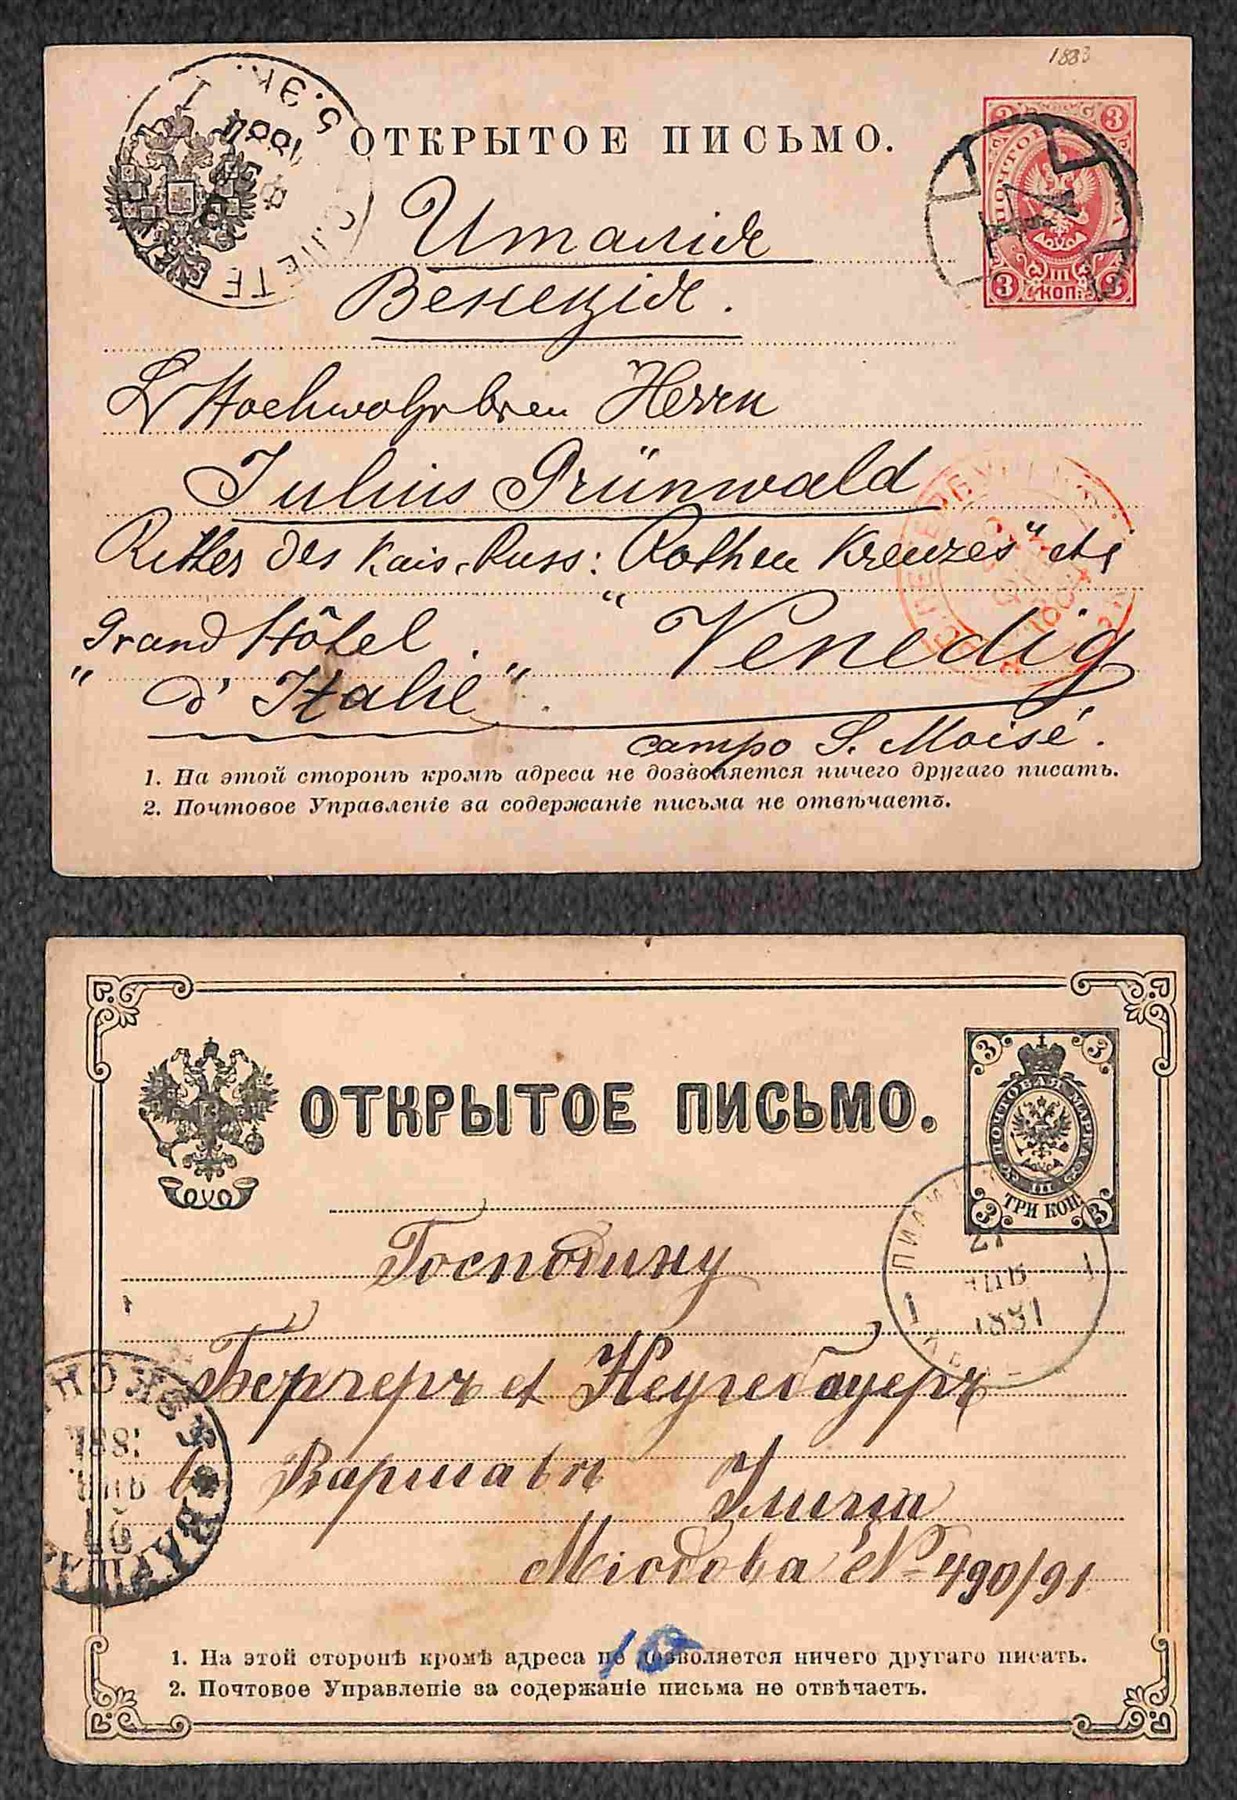 1883
ОТКРЫТОЕ ПИСЬМО.
5. ЭК.
1
1884
3 3
3 III 3
КОП.
Италіѧ
Венеціѧ.
Hochwohlgebren Herrn
Julius Grünwald
Ritter des Kais. Russ: "Rothen Kreuzes" etc
Grand Hôtel
"d'Italie". Venedig
campo S. Moisé.
1. На этой сторонѣ кромѣ адреса не дозволяется ничего другаго писать.
2. Почтовое Управленіе за содержаніе письма не отвѣчаетъ.
ОТКРЫТОЕ ПИСЬМО.
3 3
ПОЧТОВАЯ МАРКА
III
ТРИ КОП.
3 3
1881
Господину
Бергеръ et Неугебауеръ
в Варшавѣ Улица
Міодова № 490/91
1881
ВАРШАВ
10
1. На этой сторонѣ кромѣ адреса не дозволяется ничего другаго писать.
2. Почтовое Управленіе за содержаніе письма не отвѣчаетъ.